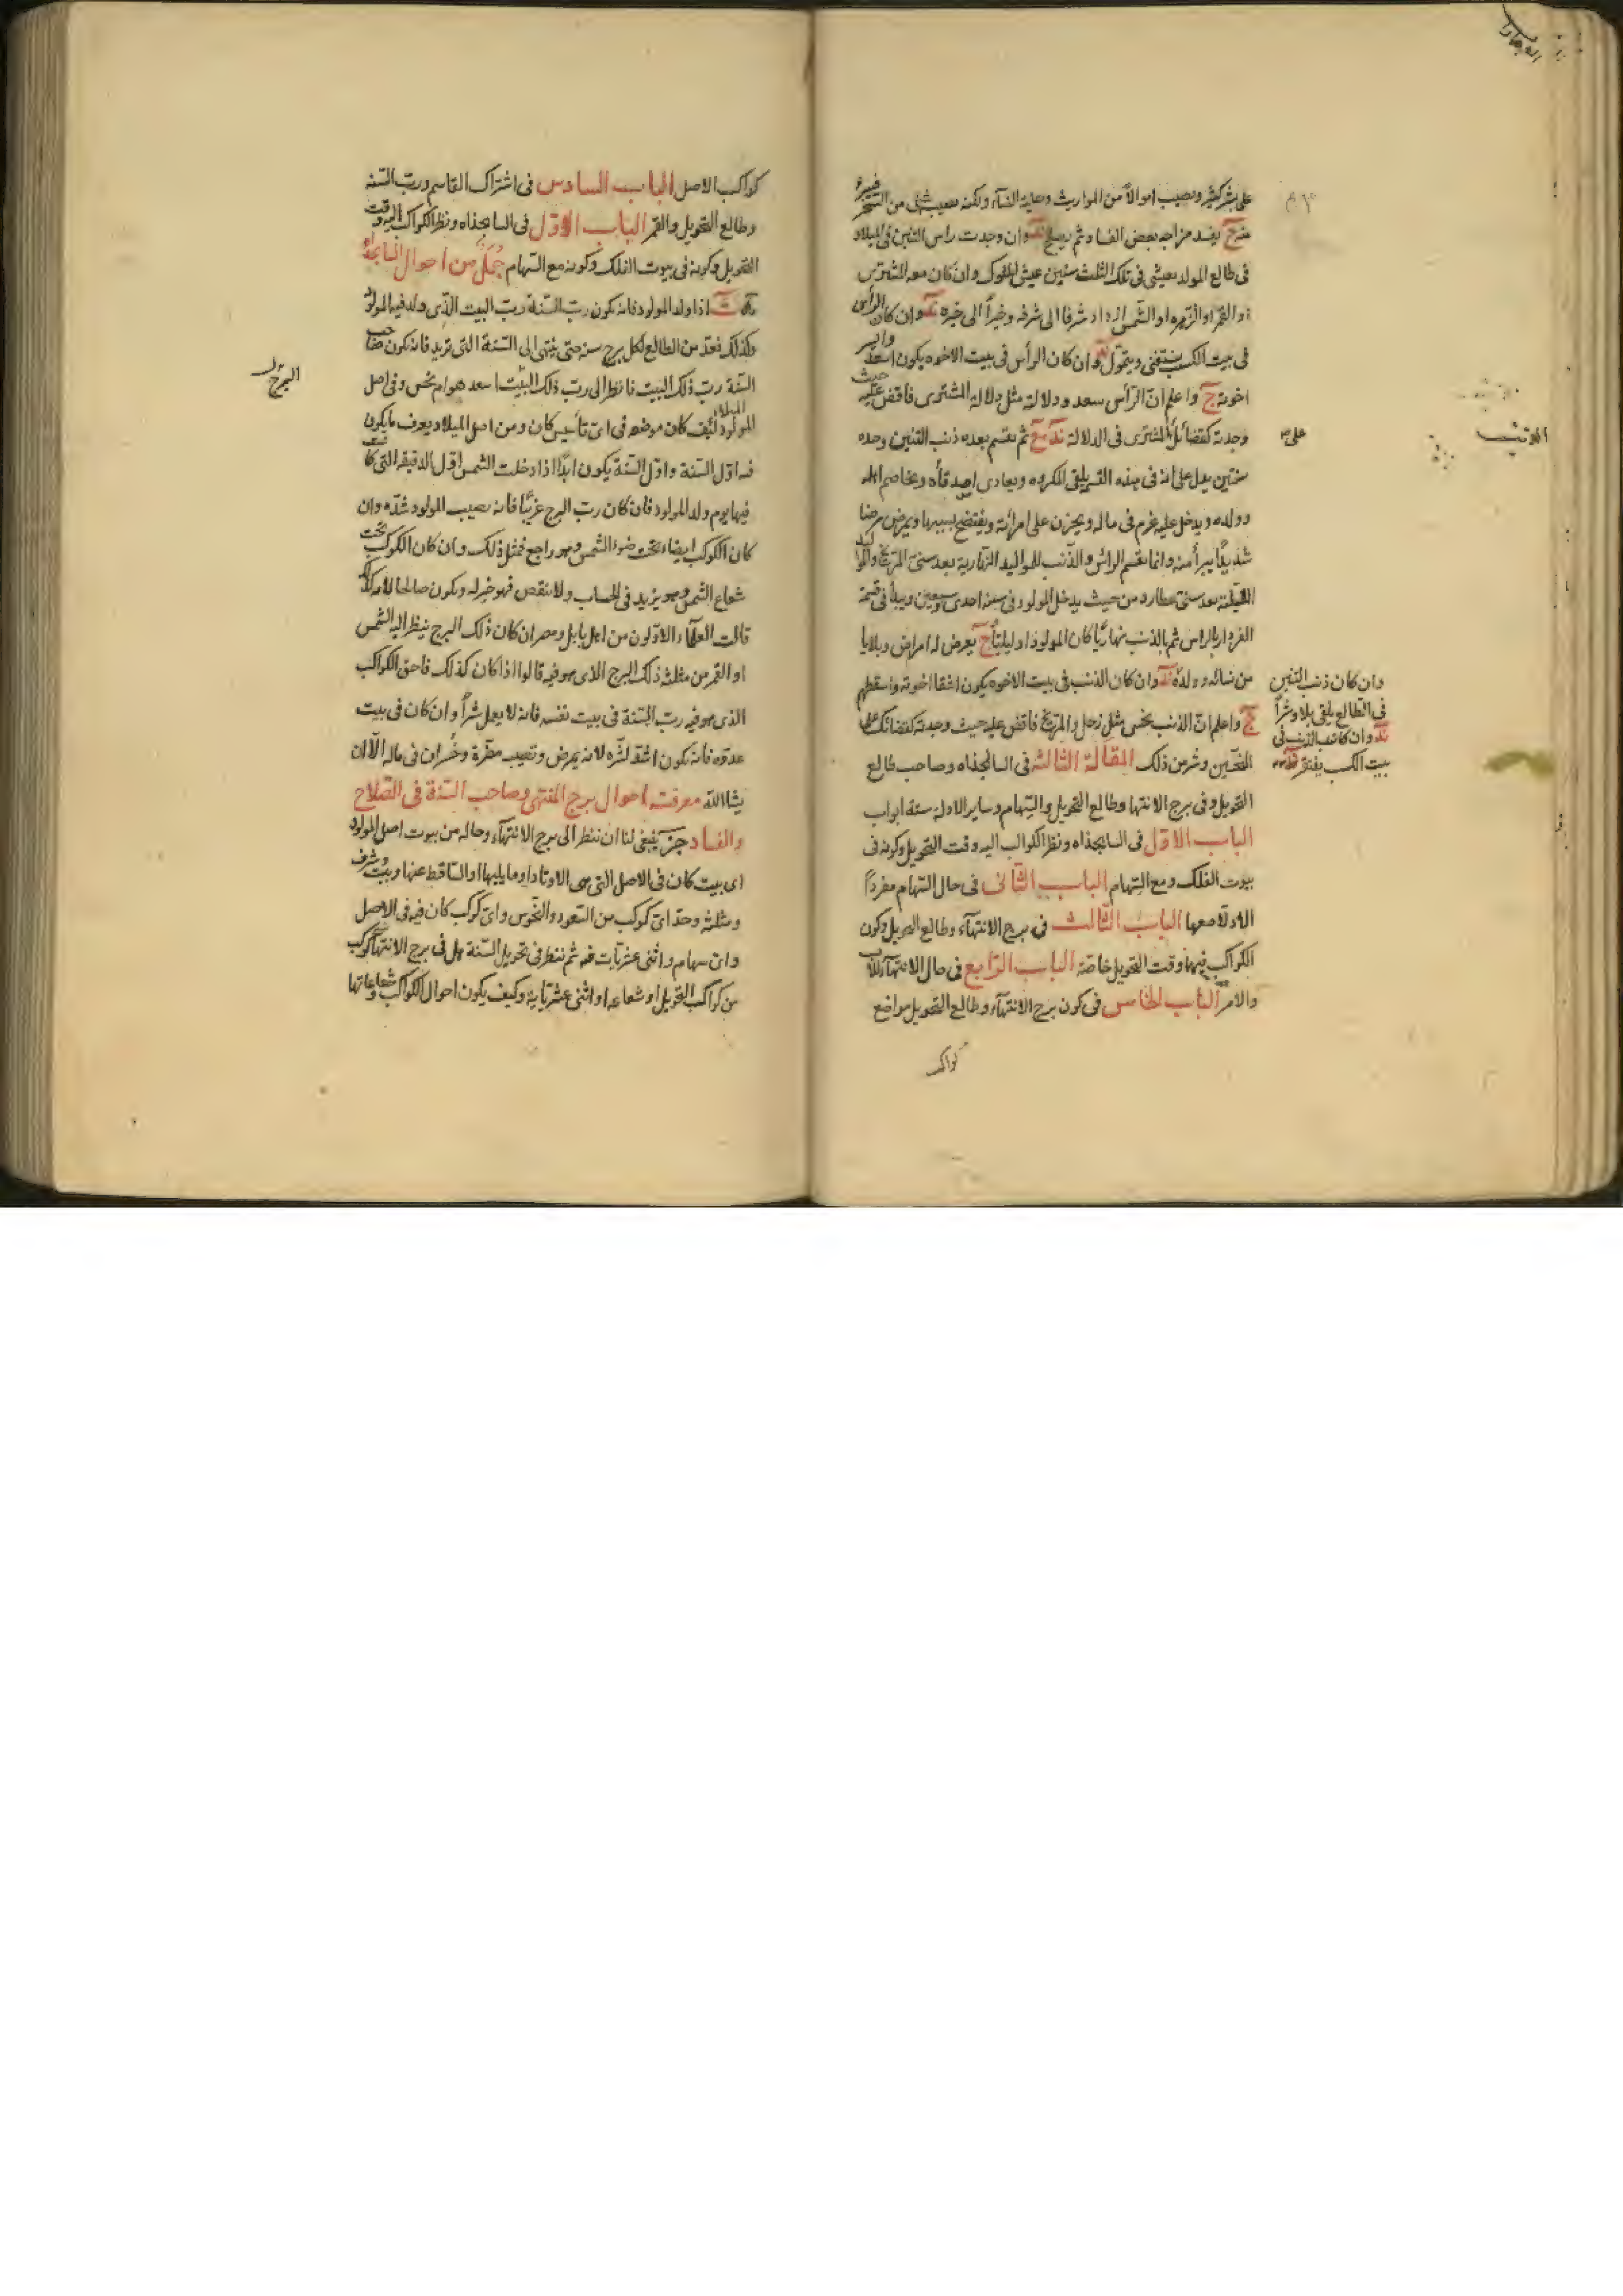 على بشر كثير ويصيب اموالا من المواريث وصلية النسآء ولكنه يصيب شئ من الشحر
يفسد مزاجه بعض الفساد ثم يصلح وان وجدت راس التنين فى الميلاد
فى طالع المولد يعيش فى تلك الثلث سنين عيش الملوك وان كان معه المشترى
او القمر او الزهره او الشمس ازداد شرفا الى شرفه وخيراً الى خيره ند وان كان الرأس
فى بيت الكسب يستغنى ويتمول ند وان كان الرأس فى بيت الاخوه يكون اسعد
اخوته ج واعلم انّ الرأس سعد ودلالة مثل دلالة المشترى فاقض عليه حيث
وجدته كقضائك المشترى فى الدلالة ند ج ثم يقسم بعده ذنب التنين وحده
سنتين يدل على انه فى هذه القسمة يلقى المكروه ويعادى اصدقآه ويخاصم اهله
وولده ويدخل عليه غرم فى ماله ويحزن على امرأته ويفتضح بسببها ويمرض مرضا
شديدًا يبرأ منه وانما يقسم الرأس والذنب للمواليد النهارية بعد سنى المريخ والمواليد
الليلية بعد سنى عطارد من حيث يدخل المولود فى سنة احدى وسبعين ويبدأ فى قسمة
الفردار بالراس ثم بالذنب نهاريًا كان المولود او ليليًا ج يعرض له امراض وبلايا
من نسائه وولده ند وان كان الذنب فى بيت الاخوه يكون اشقا اخوته واسقطهم
ج واعلم انّ الذنب نحس مثل زحل والمريخ فاقض عليه حيث وجدته كقضائك على
النحسين وشر من ذلك المقالة الثالثة فى السالخذاه وصاحب طالع
التحويل وفى برج الانتها وطالع التحويل والسهام وساير الادلة ستة ابواب
الباب الاول فى السالخذاه ونظر الكواكب اليه وقت التحويل وكونه فى
بيوت الفلك ومع السهام الباب الثانى فى حال السهام مفرداً
الادلا معها الباب الثالث فى برج الانتهآء وطالع التحويل وكون
الكواكب فيها وقت التحويل خاصة الباب الرابع فى حال الانتهآء
والامر الباب الخامس فى كون برج الانتهآء وطالع التحويل مواضع
كواكب
وان كان ذنب التنين
فى الطالع يلقى بلاء وشراً
ند وان كان الذنب فى
بيت الكسب يفتقر
على
الذنب
كواكب الاصل الباب السادس فى اشتراك القاسم ورب السنة
وطالع التحويل والقمر الباب الاول فى السالخذاه ونظر الكواكب اليه وقت
التحويل وكونه فى بيوت الفلك وكونه مع السهام جُمَل من احوال السالخذاه
اذا ولد المولود فانه يكون رب السنة رب البيت الذى ولد فيه المولود
وكذلك فعد من الطالع لكل برج سنة حتى ينتهى الى السنة التى تريد فانه يكون صاحب
السنة رب ذلك البيت فانظر الى رب ذلك البيت اسعد هو ام نحس وفى اصل
المولود كيف كان موضعه فى اى تأسيس كان ومن اصل الميلاد يعرف ما يكون
فيه اول السنة واول السنة يكون ابدًا اذا دخلت الشمس اول الدقيقة التى كانت
فيها يوم ولد المولود فان كان رب البرج غريبًا فانه يصيب المولود شدّة وان
كان الكوكب ايضا تحت ضوء الشمس وهو راجع فمثل ذلك وان كان الكوكب تحت
شعاع الشمس وهو يزيد فى الحساب ولا ينقص فهو خير له ويكون صالحا لامر
قالت العلمآء الاولون من اهل بابل ومصر ان كان ذلك البرج ينظر اليه الشمس
او القمر من مثلثة ذلك البرج الذى هو فيه قالوا اذا كان كذلك فاحق الكواكب
الذى هو فيه رب السنة فى بيت نفسه فانه لا يعمل شراً وان كان فى بيت
عدوّه فانّه يكون اشد لشره لانه يمرض وتصيب مضرة وخسران فى ماله الا ان
يشا الله معرفة احوال برج المنتهى وصاحب السنة فى الصلاح
والفساد ج ينبغى لنا ان ننظر الى برج الانتهآء وحاله من بيوت اصل المولود
اى بيت كان فى الاصل التى هى الاوتاد او ما يليها او الساقط عنها وبيت وشرف
ومثلثه وحد اىّ كوكب من السعود والنحوس واى كوكب كان فيه فى الاصل
وان سهام واثنى عشريات فيه ثم ننظر فى تحويل السنة هل فى برج الانتهآء كوكب
من كواكب التحويل او شعاعه او اثنى عشرياته وكيف يكون احوال الكواكب وشعاعاتها
البرج